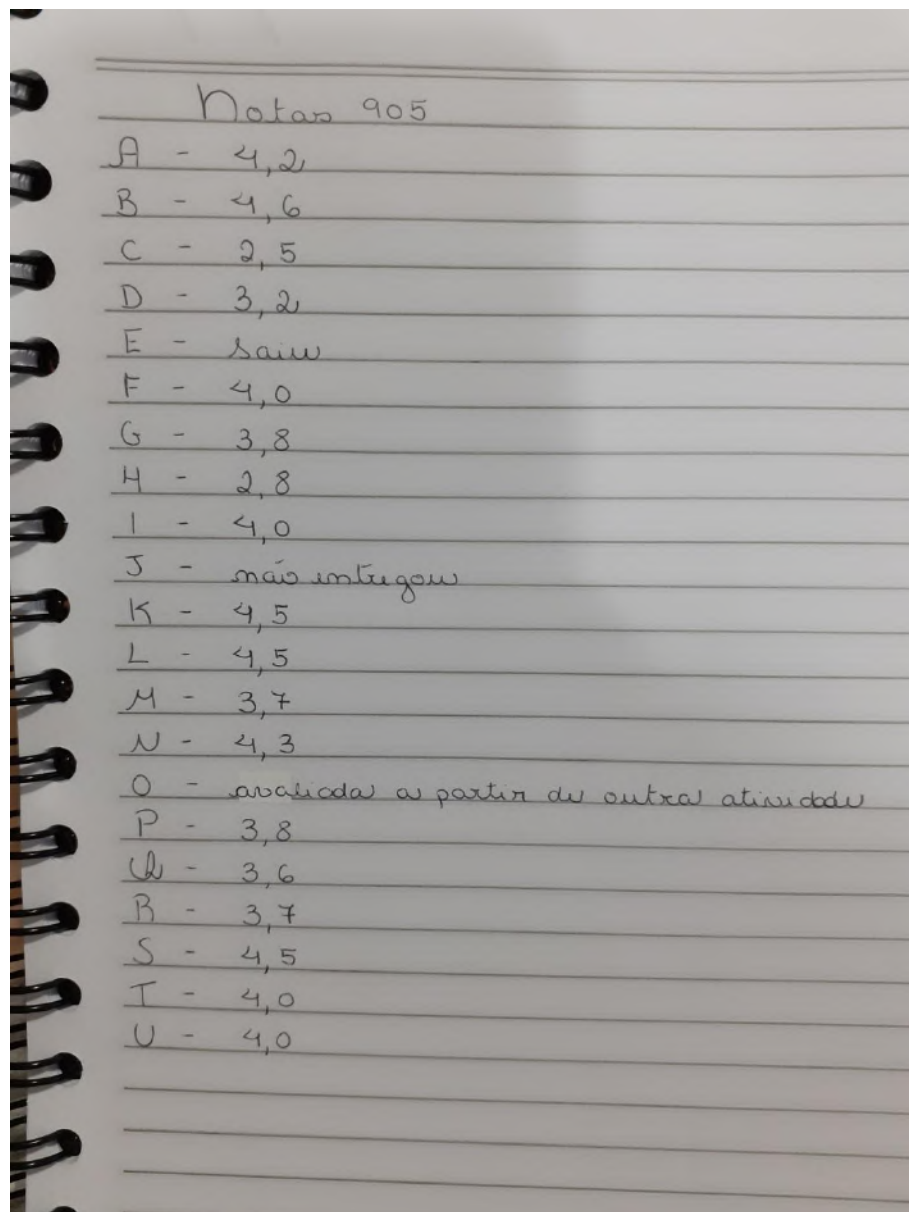 Notas 905
A - 4,2
B - 4,6
C - 2,5
D - 3,2
E - saiu
F - 4,0
G - 3,8
H - 2,8
I - 4,0
J - não entregou
K - 4,5
L - 4,5
M - 3,7
N - 4,3
O - avaliada a partir de outra atividade
P - 3,8
Q - 3,6
R - 3,7
S - 4,5
T - 4,0
U - 4,0